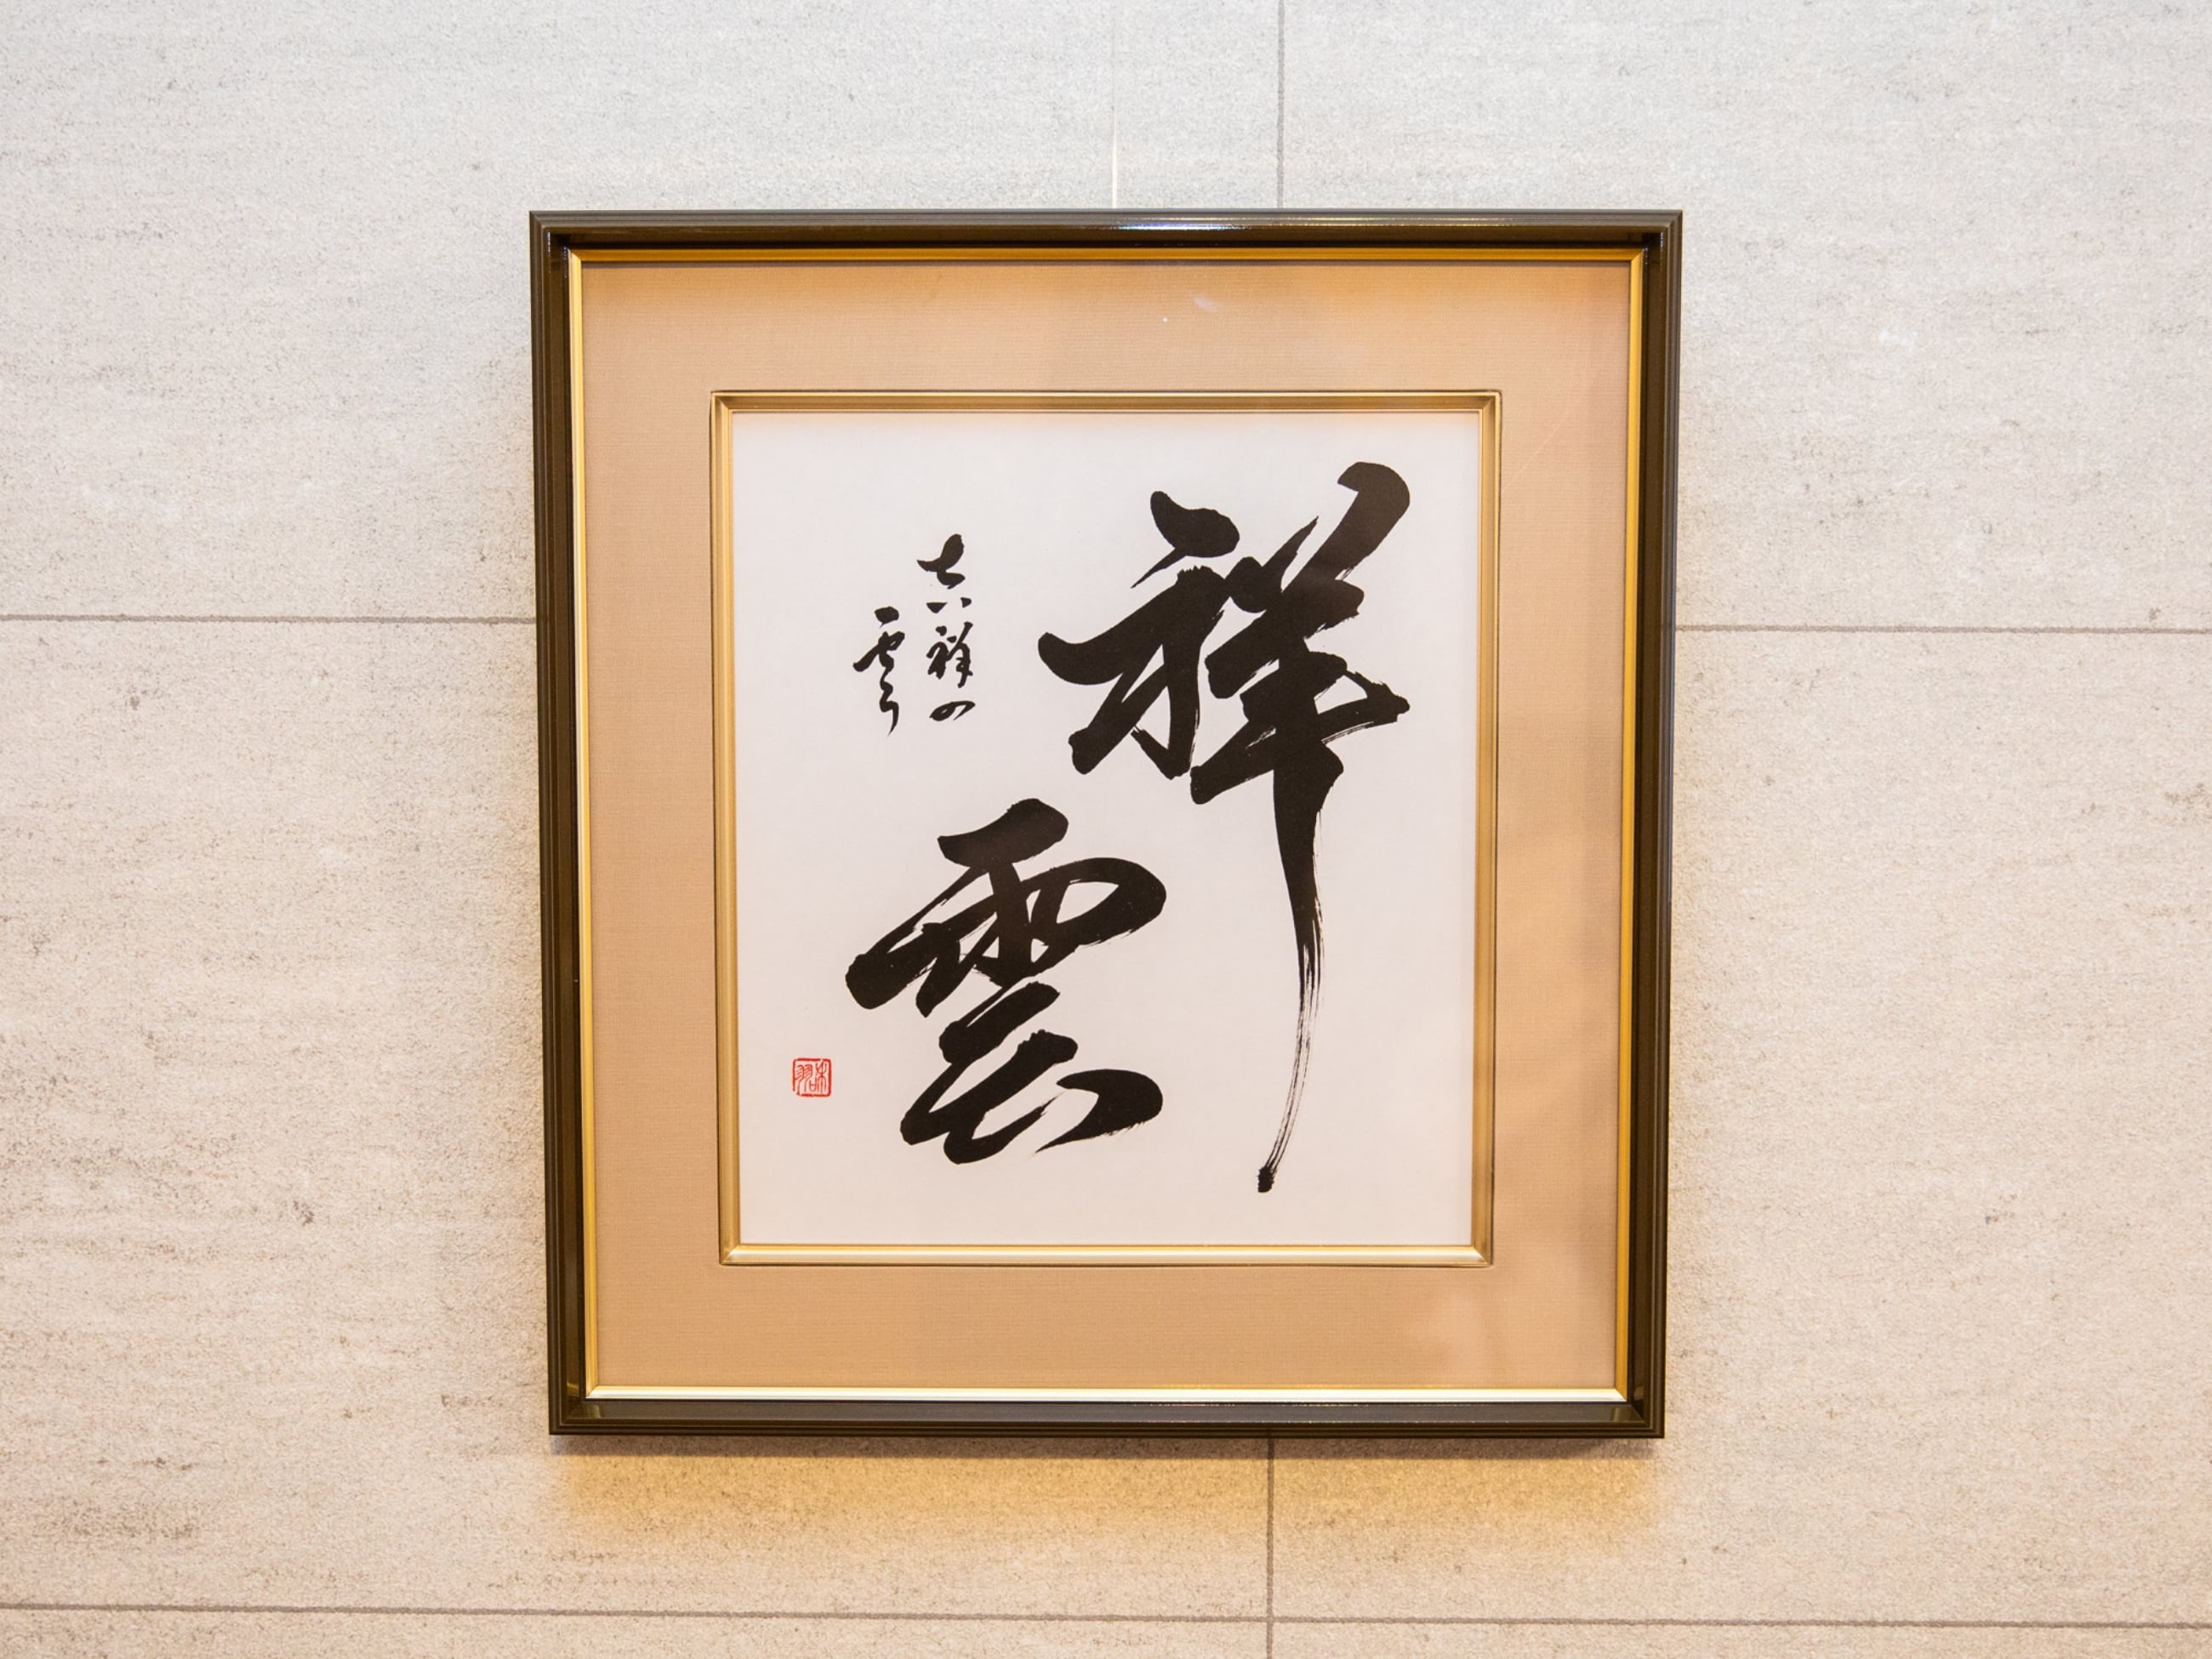 祥
雲
吉祥の
雲